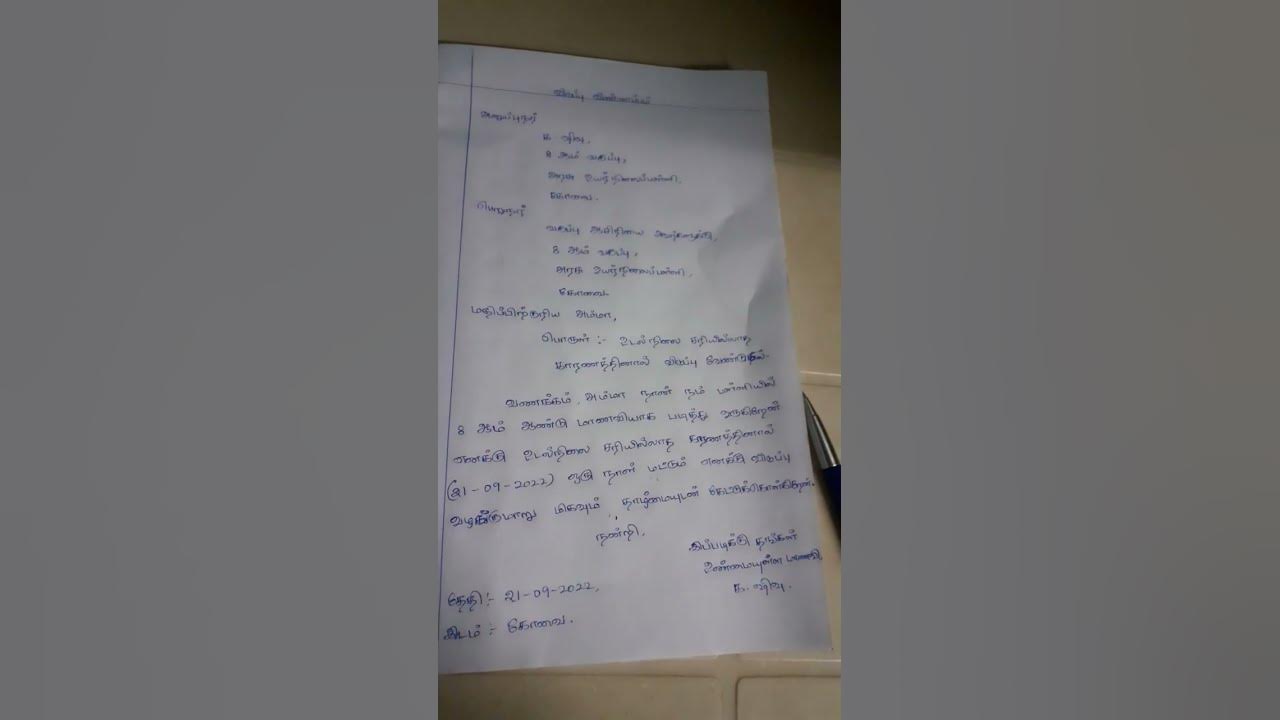 விடுப்பு விண்ணப்பம்
அனுப்புநர்
க. ஷிவு,
8 ஆம் வகுப்பு,
அரசு உயர்நிலைப்பள்ளி,
கோவை.
பெறுநர்
வகுப்பு ஆசிரியை அவர்களுக்கு,
8 ஆம் வகுப்பு,
அரசு உயர்நிலைப்பள்ளி,
கோவை.
மதிப்பிற்குரிய அம்மா,
பொருள் :- உடல்நிலை சரியில்லாத
காரணத்தினால் விடுப்பு வேண்டுதல்.
வணக்கம். அம்மா நான் நம் பள்ளியில்
8 ஆம் ஆண்டு மாணவியாக படித்து வருகிறேன்
எனக்கு உடல்நிலை சரியில்லாத காரணத்தினால்
(21-09-2022) ஒரு நாள் மட்டும் எனக்கு விடுப்பு
வழங்குமாறு மிகவும் தாழ்மையுடன் கேட்டுக்கொள்கிறேன்.
நன்றி.
இப்படிக்கு தங்கள்
உண்மையுள்ள மாணவி,
க. ஷிவு.
தேதி :- 21-09-2022,
இடம் :- கோவை.